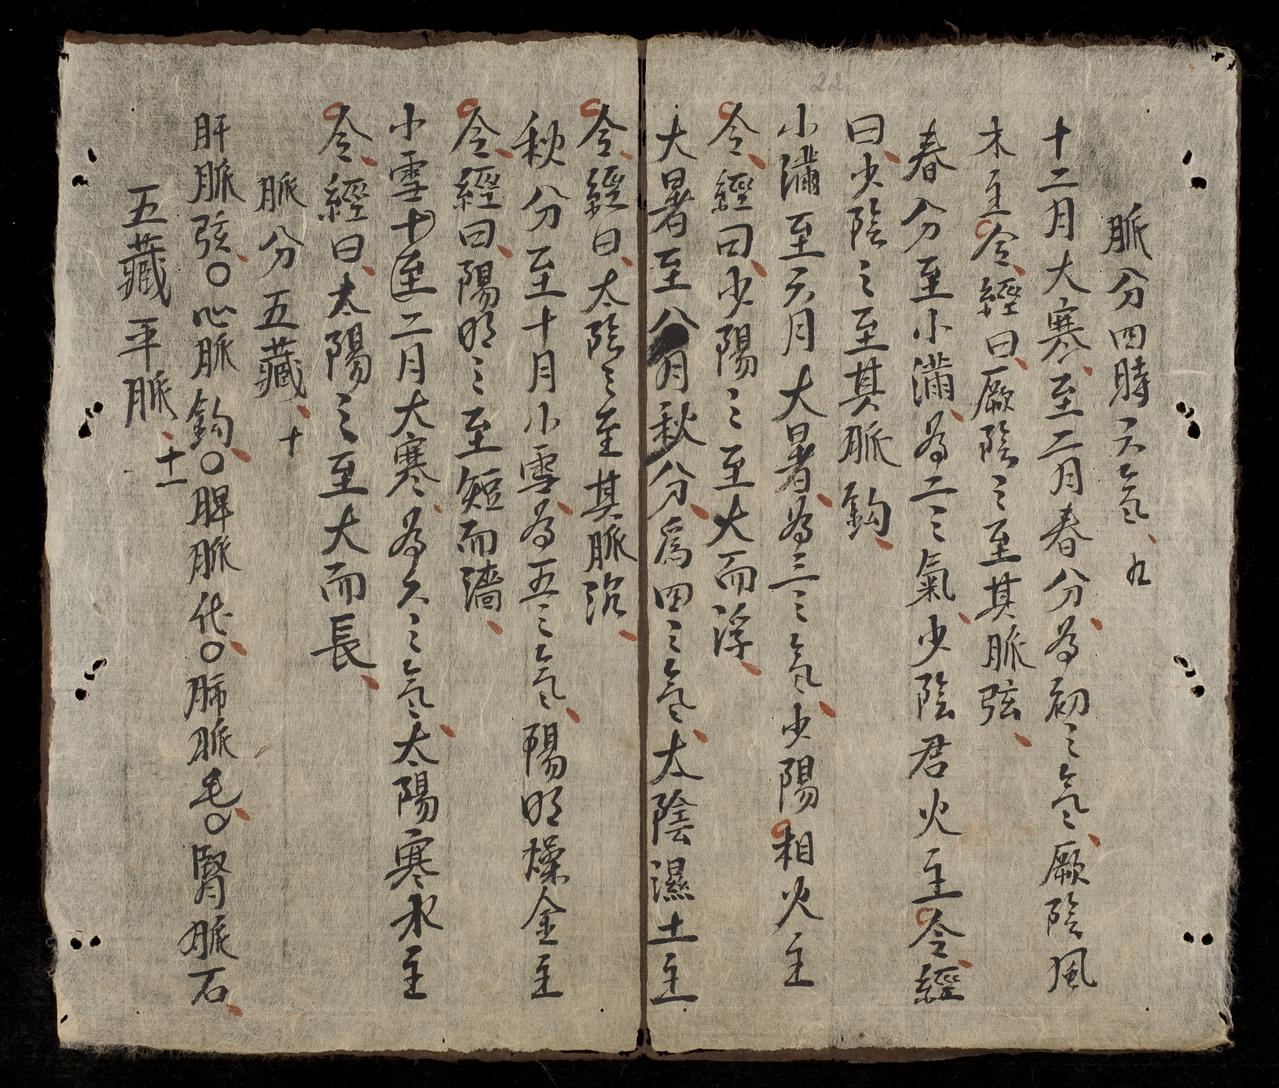 脈分四時六氣、九
十二月大寒、至二月春分、為初之氣、厥陰風
木主令、經曰、厥陰之至其脈弦、
春分至小滿、為二之氣、少陰君火主令、經
曰、少陰之至其脈鈎、
小滿至六月大暑、為三之氣、少陽相火主
令、經曰、少陽之至大而浮、
大暑至八月秋分、爲四之氣、太陰濕土主
令、經曰、太陰之至其脈沉、
秋分至十月小雪、為五之氣、陽明燥金主
令、經曰、陽明之至短而濇、
小雪十至二月大寒、為六之氣、太陽寒水主
令、經曰、太陽之至大而長、
脈分五藏、十
肝脈弦、○心脈鈎、○脾脈代、○肺脈毛、○腎脈石、
五藏平脈、十一